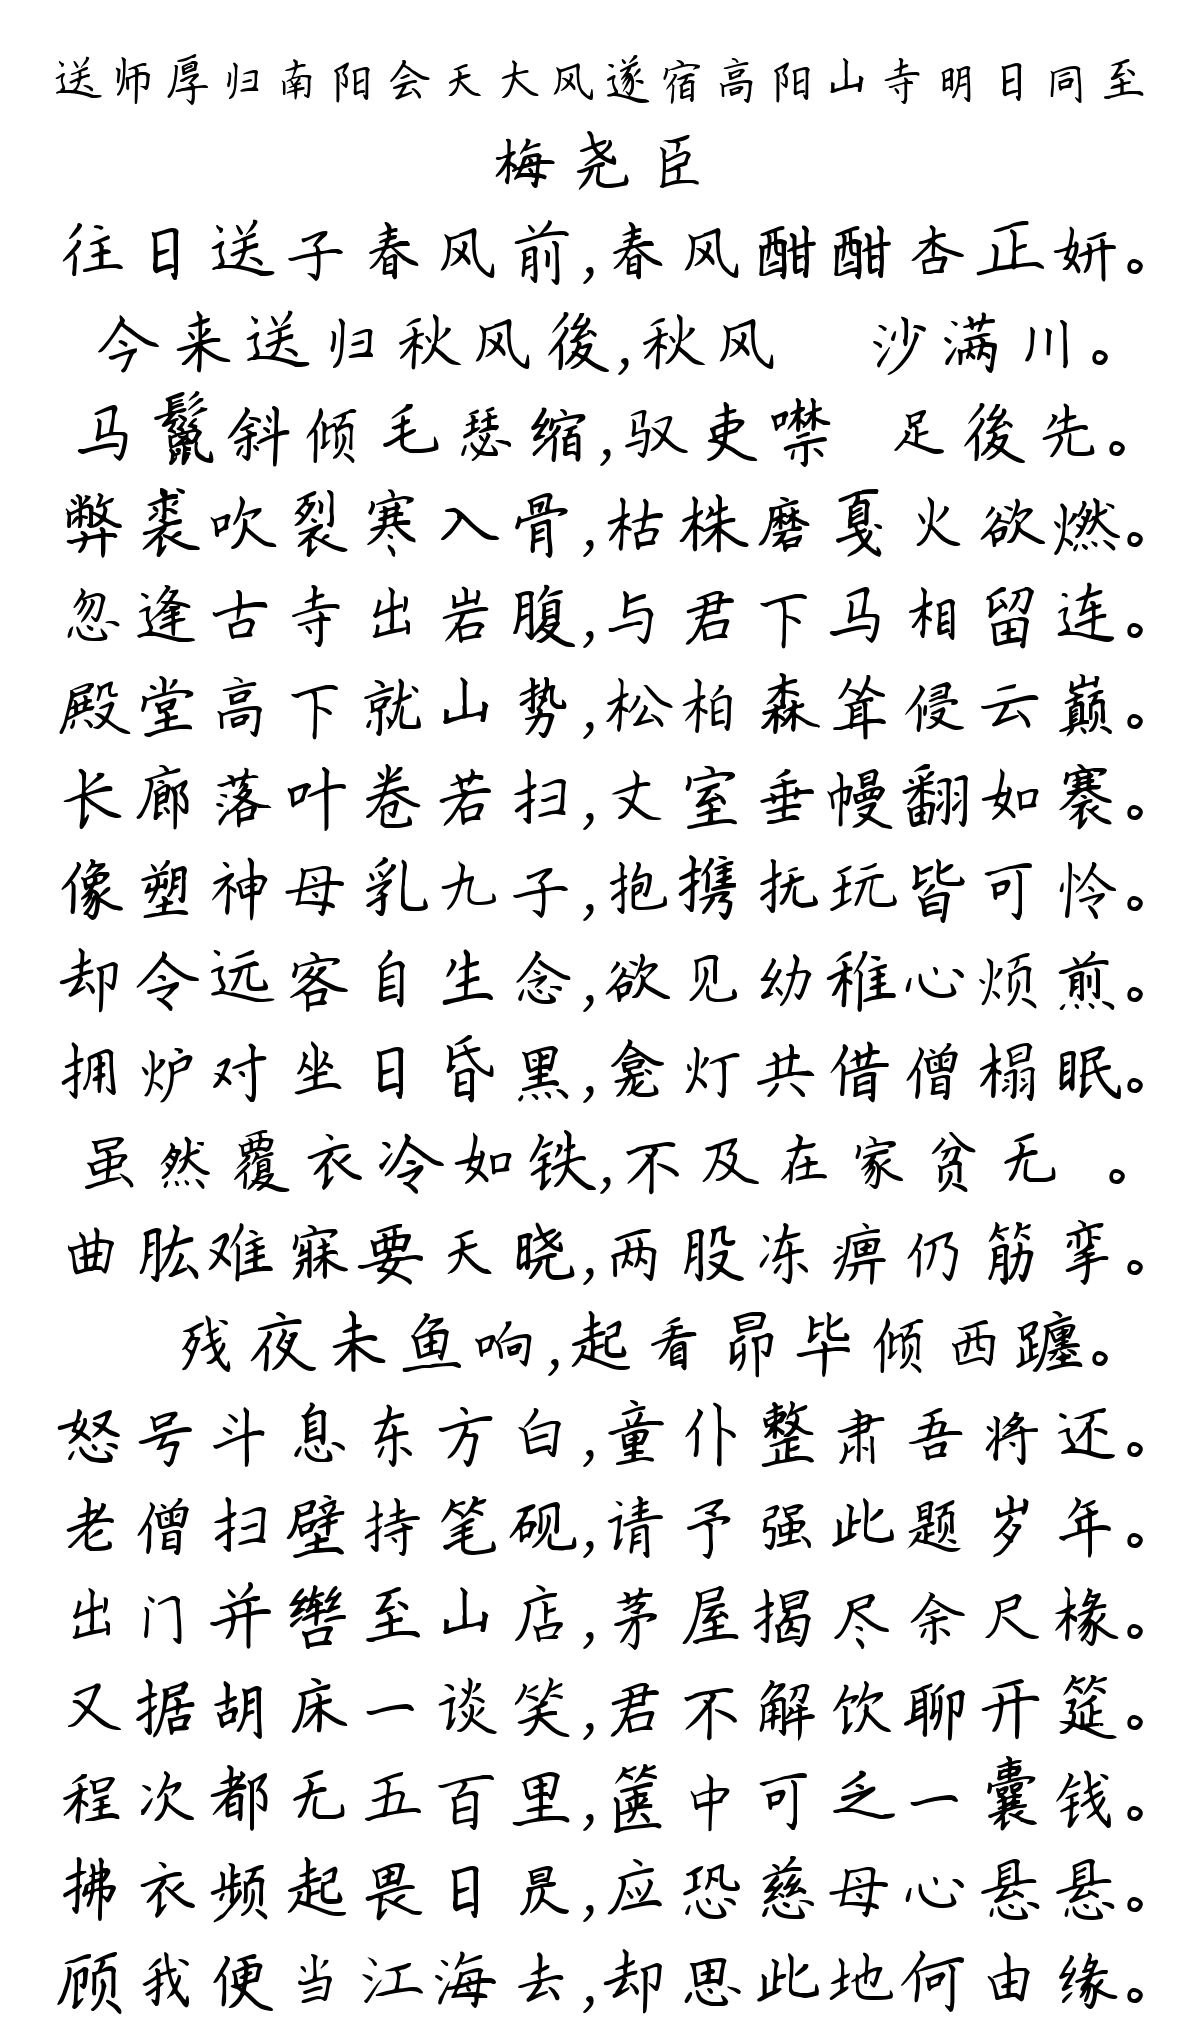 送师厚归南阳会天大风遂宿高阳山寺明日同至
梅尧臣
往日送子春风前,春风酣酣杏正妍。
今来送归秋风後,秋风 沙满川。
马鬣斜倾毛瑟缩,驭吏噤 足後先。
弊裘吹裂寒入骨,枯株磨戛火欲燃。
忽逢古寺出岩腹,与君下马相留连。
殿堂高下就山势,松柏森耸侵云巅。
长廊落叶卷若扫,丈室垂幔翻如褰。
像塑神母乳九子,抱携抚玩皆可怜。
却令远客自生念,欲见幼稚心烦煎。
拥炉对坐日昏黑,龛灯共借僧榻眠。
虽然覆衣冷如铁,不及在家贫无 。
曲肱难寐要天晓,两股冻痹仍筋挛。
残夜未鱼响,起看昴毕倾西躔。
怒号斗息东方白,童仆整肃吾将还。
老僧扫壁持笔砚,请予强此题岁年。
出门并辔至山店,茅屋揭尽余尺椽。
又据胡床一谈笑,君不解饮聊开筵。
程次都无五百里,箧中可乏一囊钱。
拂衣频起畏日昃,应恐慈母心悬悬。
顾我便当江海去,却思此地何由缘。